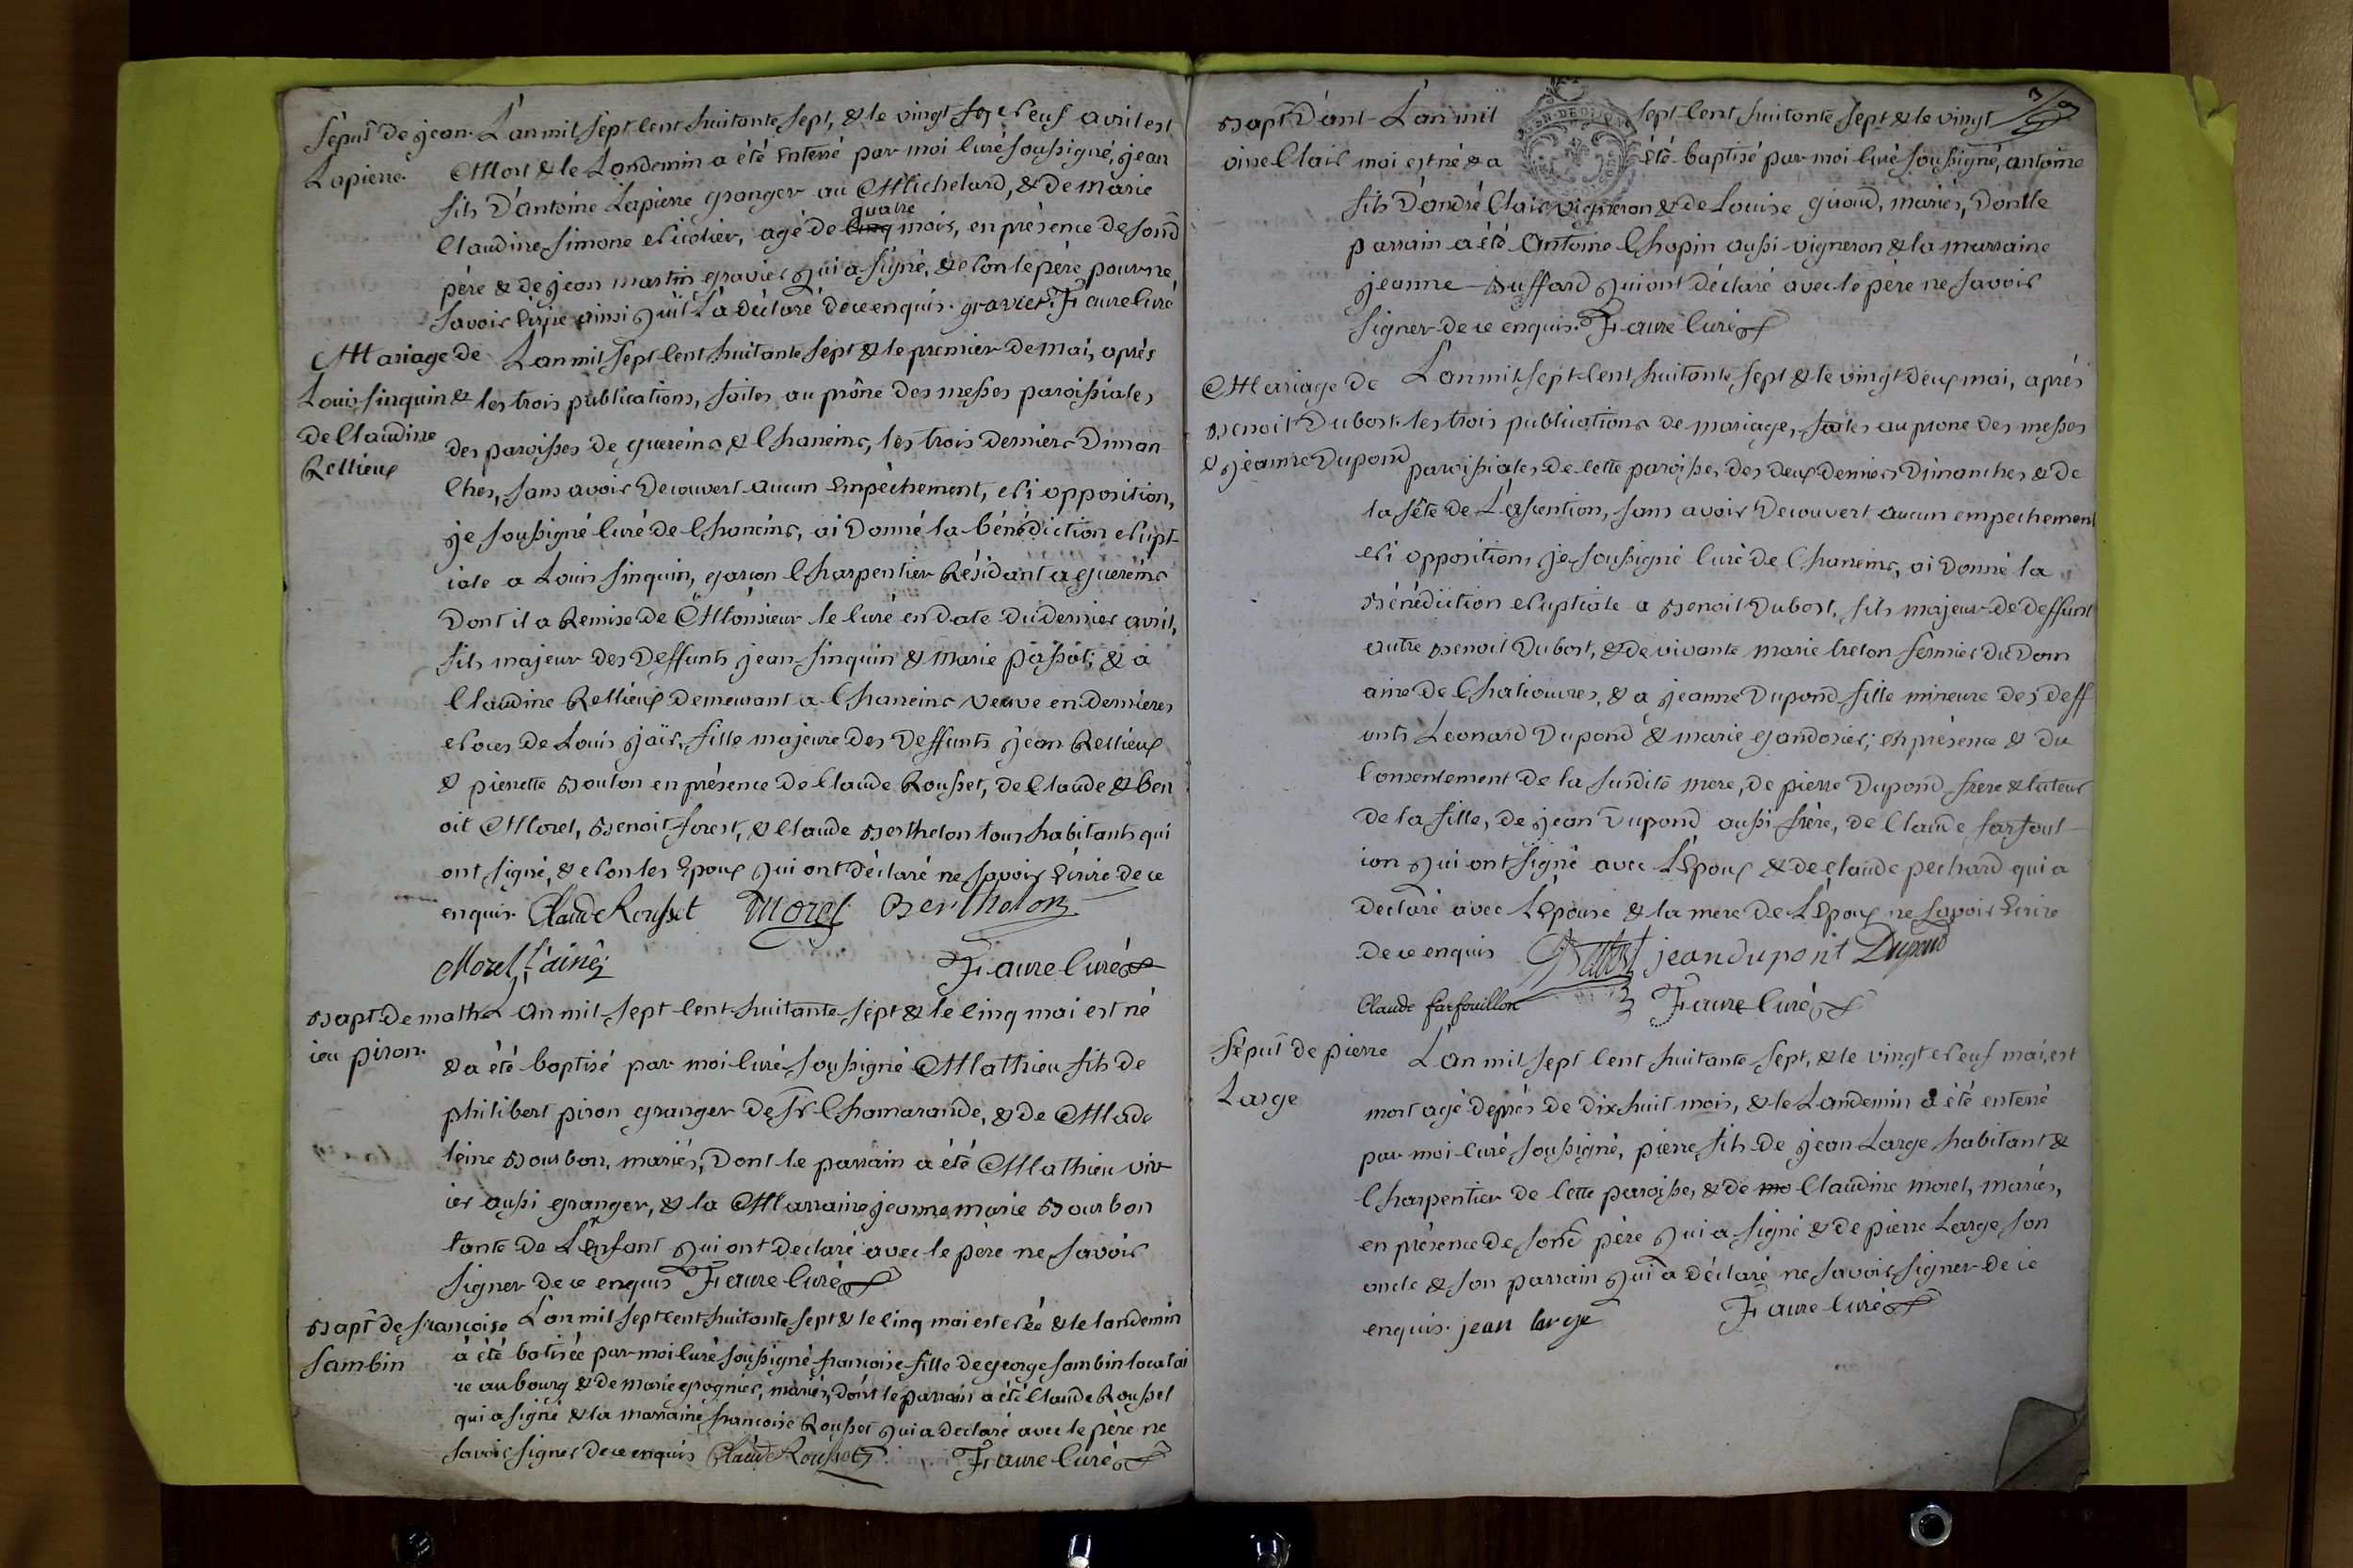 Sépult de jean
Lapierre.
L'an mil sept cent huitante sept, & le vingt neuf avril est
Mort & le Landemin a été Enterré par moi Curé soussigné, jean
fils D'antoine Lapierre granger au Michelard, & de marie
quatre
Claudine Simone Nicolier, agé de cinq mois, en présence de sond
père & de jean martin gravier qui a signé, & Non le père pour ne
savoir Ecrire ainsi qu'il L'a déclaré de ce enquis. gravier. Faure Curé
Mariage de
Louis sinquin &
de Claudine
Rellieux
L'an mil sept cent huitante sept & le premier de mai, après
les trois publications, faites au prône des messes paroissiales
des paroisses de guereins & Chaneins, les trois derniers Diman
Ches, sans avoir Decouvert aucun Empêchement, Ni opposition,
je soussigné Curé de Chaneins, ai Donné la bénédiction Nupt-
iale a Louis sinquin, garcon Charpentier Résidant a guereins
Dont il a Remise de Monsieur le Curé en Date du dernier avril,
fils majeur des Deffunts jean sinquin & Marie passot; & a
Claudine Rellieux Demeurant a Chaneins veuve en dernieres
Noces de Louis jaïr, fille majeure des Deffunts jean Rellieux
& pierrette Bouton en présence de Claude Rousset, de Claude & Ben
oit Morel, Benoit forest, & Claude Berthelon tous habitants qui
ont signé, & Non les Epoux qui ont déclaré ne savoir Ecrire de ce
enquis. Claude Rousset Morel Berthelon
Morel l'ainé Faure Curé
Bapt. de math
ieu piron.
L'an mil sept cent huitante sept & le cinq mai est né
& a été baptisé par moi Curé soussigné Mathieu fils de
philibert piron granger de Sr Chamarande, & de Made
leine Bourbon, mariés, Dont le parrain a été Mathieu viv-
ier aussi granger, & la Marraine jeanne marie Bourbon
tante de L'Enfant qui ont declaré avec le père ne savoir
signer de ce enquis Faure Curé
Bapt de françoise
sambin
L'an mil sept cent huitante sept & le cinq mai est Née & le landemin
a été batisée par moi Curé soussigné françoise fille de george sambin locatai
re au bourg & de marie grognier, mariés, dont le parrain a été Claude Rousset
qui a signé & la marraine françoise Rousset qui a declaré avec le père ne
savoir signer de ce enquis Claude Rousset Faure Curé
Bapt D'ant
oine Clair
L'an mil sept cent huitante sept & le vingt
moi est né & a été baptisé par moi Curé soussigné, antoine
fils D'andré Clair vigneron & de Louise giroud, mariés, Dont le
parrain a été Antoine Chapin aussi vigneron & la marraine
jeanne Buffard qui ont déclaré avec le père ne savoir
signer de ce enquis. Faure Curé
Mariage de
Benoit Dubost
& jeanne Dupond
L'an mil sept cent huitante sept & le vingt deux mai, après
les trois publications de mariage, faites au prone des messes
paroissiales de cette paroisse, des deux derniers Dimanches & de
la fête de L'ascention, sans avoir Decouvert aucun empechement
Ni opposition, je soussigné Curé de Chaneins, ai Donné la
Bénédiction Nuptiale a Benoit Dubost, fils majeur de deffunt
autre Benoit Dubost, & de vivante marie treton fermier du Dom
aine de Chaliouvres, & a jeanne Dupond fille mineure des deff
unts Leonard Dupond & marie gandorier; en présence & du
Consentement de la susdite mere, de pierre Dupond frere & tuteur
de la fille, de jean Dupond aussi frère, de Claude farfoul-
ion qui ont signé avec L'Epoux & de Claude pechard qui a
declaré avec L'Epouse & la mere de L'Epoux ne savoir Ecrire
de ce enquis Dubost jean dupont Dupond
Claude farfouillon Faure Curé
Sépult de pierre
Large
L'an mil sept cent huitante sept, & le vingt Neuf mai, est
mort agé de près de dix huit mois, & le Landemin a été enterré
par moi Curé soussigné, pierre fils de jean Large habitant &
Charpentier de Cette parroisse, & de mo Claudine morel, mariés,
en présence de sond père qui a signé & de pierre Large son
oncle & son parrain qui a déclaré ne savoir signer de ce
enquis. jean large Faure Curé